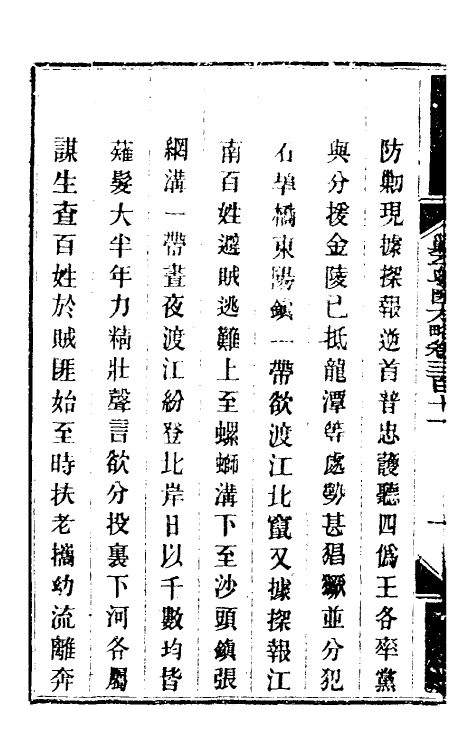 防勦現據探報逆首普忠護聽四僞王各率黨
與分援金陵已抵龍潭等處勢甚猖獗並分犯
石埠橋東陽鎮一帶欲渡江北竄又據探報江
南百姓避賊逃難上至螺螄溝下至沙頭鎮張
網溝一帶晝夜渡江紛登北岸日以千數均皆
薙髮大半年力精壯聲言欲分投裏下河各屬
謀生查百姓於賊匪始至時扶老攜幼流離奔